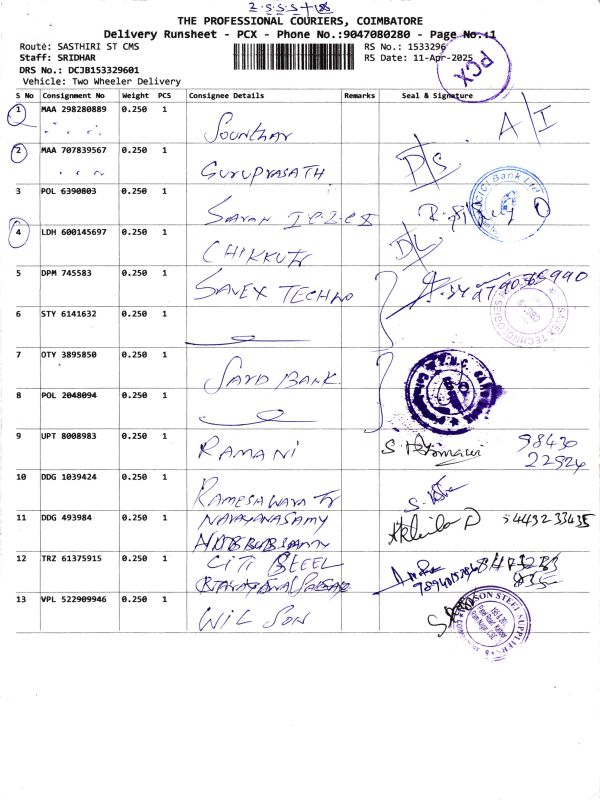 THE PROFESSIONAL COURIERS, COIMBATORE
Delivery Runsheet - PCX - Phone No.:9047080280 - Page No.:1
Route: SASTHIRI ST CMS
RS No.: 1533296
Staff: SRIDHAR
RS Date: 11-Apr-2025
DRS No.: DCJB153329601
Vehicle: Two Wheeler Delivery
PCX
S No Consignment No Weight PCS Consignee Details Remarks Seal & Signature
1 MAA 298280889 0.250 1 Sounthar A/I
2 MAA 707839567 0.250 1 GURUPRASATH D/S
3 POL 6390803 0.250 1 Saran
ICICI Bank Ltd
4 LDH 600145697 0.250 1 CHIKKU Tr D/L
5 DPM 745583 0.250 1 SAVEX TECHNO
6 STY 6141632 0.250 1
SAVEX TECHNOLOGIES
7 OTY 3895850 0.250 1 SAYD BANK
8 POL 2048094 0.250 1
9 UPT 8008983 0.250 1 RAMANI 98430
22924
10 DDG 1039424 0.250 1 RAMESHWARA Tr
11 DDG 493984 0.250 1 NARAYANASAMY
12 TRZ 61375915 0.250 1 CITI STEEL
13 VPL 522909946 0.250 1 WILSON
SON STEEL SUPPLIERS